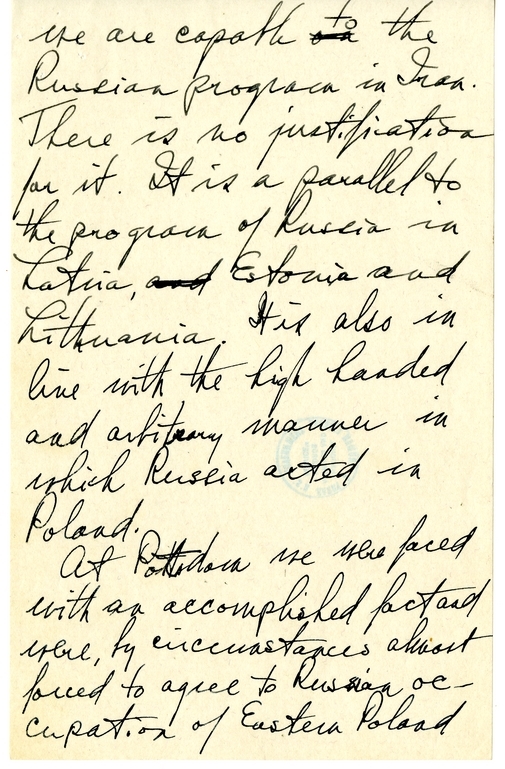 we are capable ~~on~~ to the
Russian program in Iran.
There is no justification
for it. It is a parallel to
the program of Russia in
Latvia, ~~and~~ Estonia and
Lithuania. It is also in
line with the high handed
and arbitrary manner in
which Russia acted in
Poland.
At Potsdam we were faced
with an accomplished fact and
were, by circumstances almost
forced to agree to Russian oc-
cupation of Eastern Poland